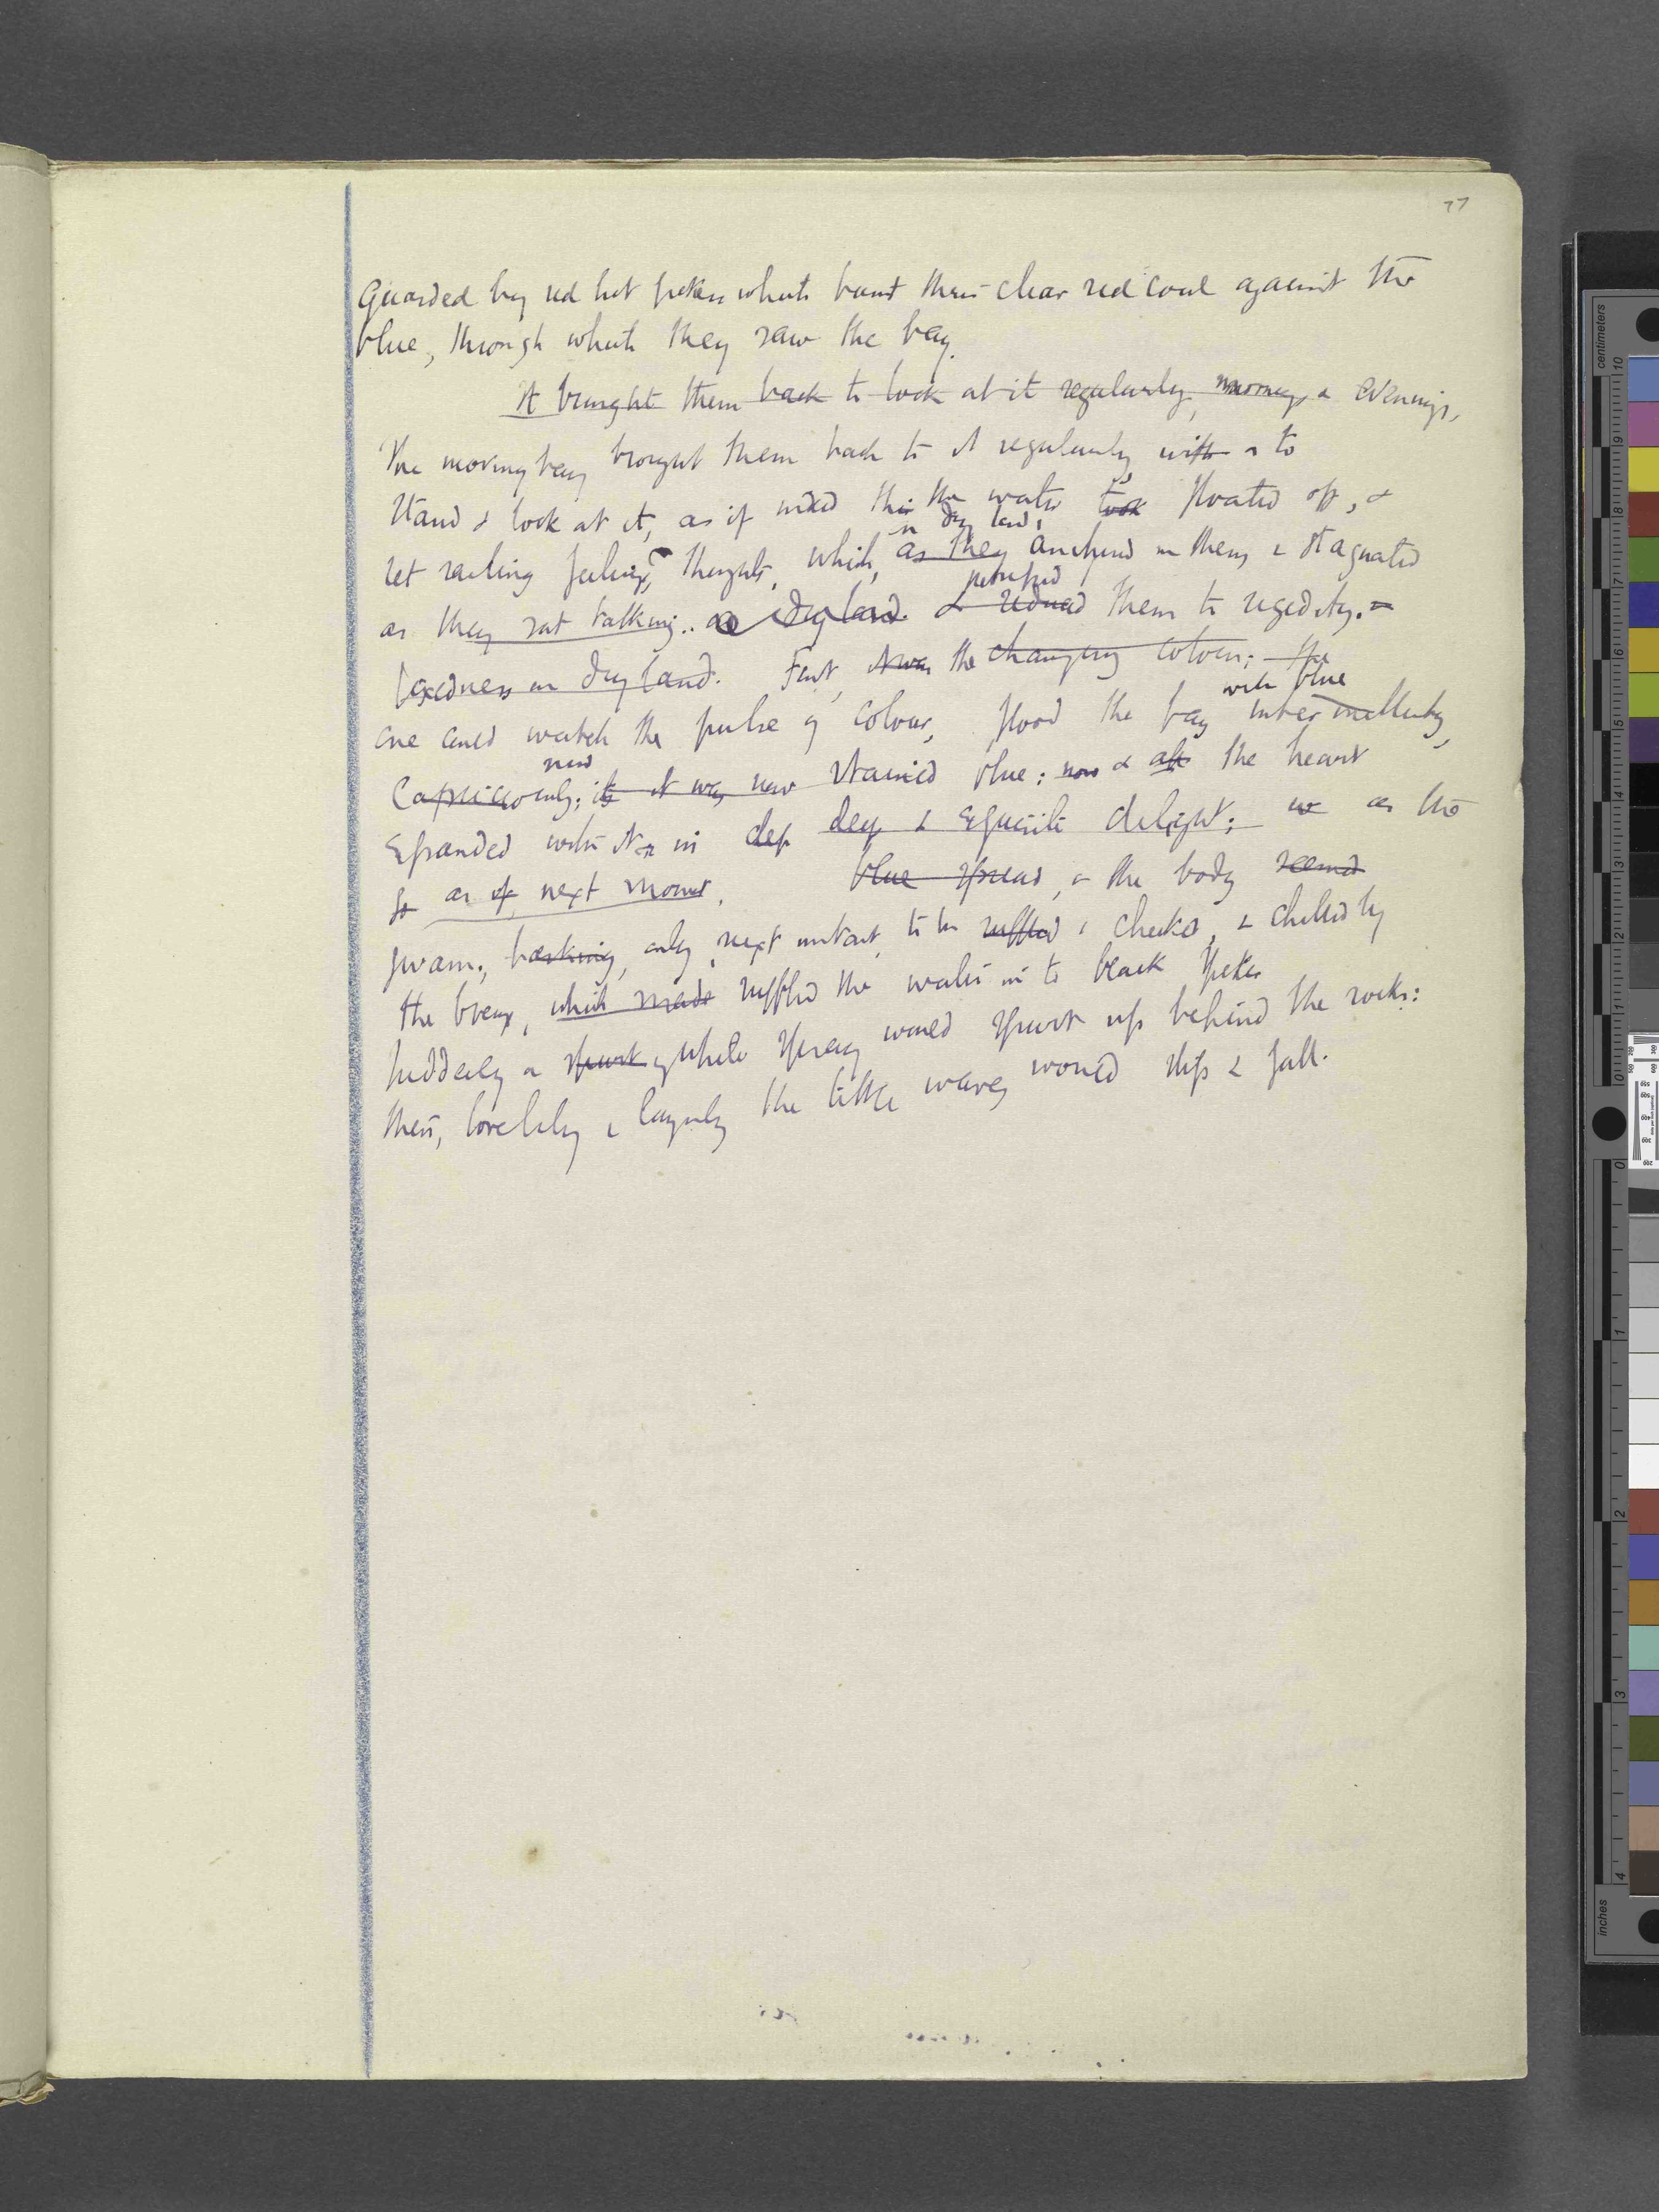 77
Guarded by red hot pokers which burnt their clear red coal against the
blue, through which they saw the bay.
It brought them back to look at it regularly, mornings & evenings,
The moving bay brought them back to it regularly, with & to
Stand & look at it, as if indeed this the water took floated off, &
on dry land,
set sailing feelings, thoughts, which, as they anchored in them, & stagnated
petrified
as they sat talking.. on dry land. & reduced them to rigidity. –
fixedness on dry land. First, it was the changing colour; the
with blue
one could watch the pulse of colour, flood the bay intermittently,
now
Capriciously; its it was now stained blue: now & also the heart
Expanded with it in deep deep & exquisite delight; as the
So as if next moment, blue spread, & the body seemed
swam, basking, only next instant to be ruffled & checked, & chilled by
the breeze, which made ruffled the water in to black spikes
Suddenly a spurt of white spray would spurt up behind the rocks:
then, lovelily & layingly the little waves would slip & fall.
centimeters
inches